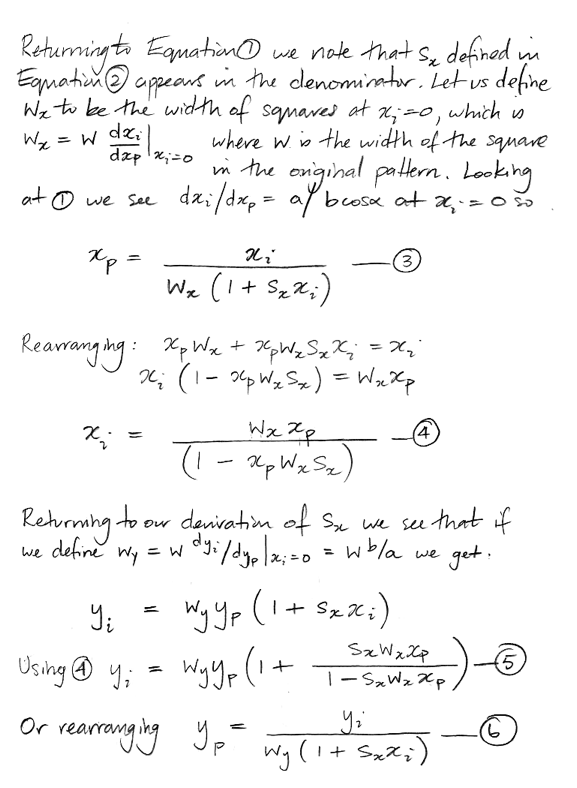 Returning to Equation ① we note that Sₓ defined in
Equation ② appears in the denominator. Let us define
Wₓ to be the width of squares at xᵢ=0, which is
Wₓ = W dxᵢ/dxₚ|xᵢ=0 where W is the width of the square
in the original pattern. Looking
at ① we see dxᵢ/dxₚ = a/bcosα at xᵢ = 0 so
xₚ = xᵢ / Wₓ (1 + Sₓxᵢ) — ③
Rearranging: xₚWₓ + xₚWₓSₓxᵢ = xᵢ
xᵢ (1 - xₚWₓSₓ) = Wₓxₚ
xᵢ = Wₓxₚ / (1 - xₚWₓSₓ) — ④
Returning to our derivation of Sₓ we see that if
we define Wy = W dyᵢ/dyₚ|xᵢ=0 = W b/a we get.
yᵢ = Wy yₚ (1 + Sₓxᵢ)
Using ④ yᵢ = Wy yₚ (1 + SₓWₓxₚ / 1 - SₓWₓxₚ) — ⑤
Or rearranging yₚ = yᵢ / Wy (1 + Sₓxᵢ) — ⑥